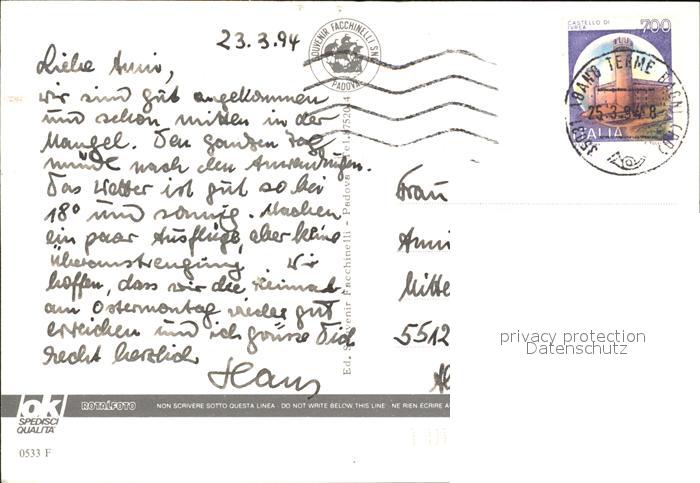 23.3.94
Liebe Anni,
wir sind gut angekommen
und schon mitten in der
Mangel. Den ganzen Tag
müde nach den Anwendungen.
Das Wetter ist gut so bei
18° und sonnig. Machen
ein paar Ausflüge, aber keine
Überanstrengung. Wir
hoffen, dass wir die Heimat
am Ostermontag wieder gut
erreichen und ich grüsse Dich
recht herzlich
Hans
SOUVENIR FACCHINELLI SNC
PADOVA
Ed. Souvenir Facchinelli - Padova
CASTELLO DI
IVREA
700
ITALIA
ABANO TERME BAGNI (PD)
25.3.94 8
Frau
Anni
Mitte
5512
privacy protection
Datenschutz
ok
SPEDISCI
QUALITA'
ROTALFOTO
NON SCRIVERE SOTTO QUESTA LINEA - DO NOT WRITE BELOW THIS LINE - NE RIEN ECRIRE A
0533 F